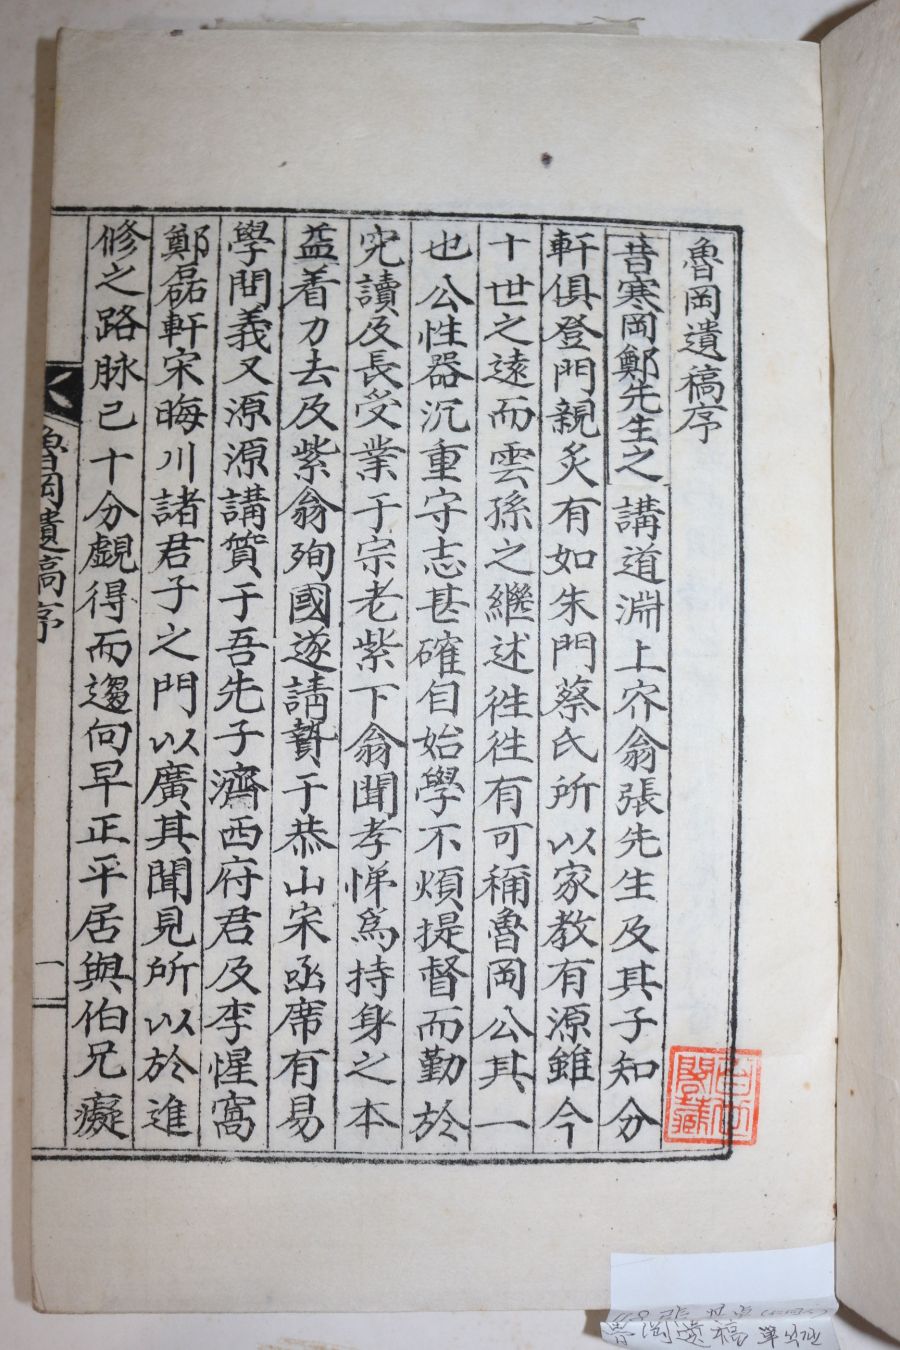 魯岡遺稿序
昔寒岡鄭先生之講道淵上岕翁張先生及其子知分
軒俱登門親炙有如朱門蔡氏所以家教有源雖今
十世之遠而雲孫之繼述徃徃有可稱魯岡公其一
也公性器沉重守志甚確自始學不煩提督而勤於
究讀及長受業于宗老紫下翁聞孝悌爲持身之本
益着力去及紫翁殉國遂請贄于恭山宋亟席有易
學問義又源源講質于吾先子濟西府君及李惺窩
鄭磊軒宋晦川諸君子之門以廣其聞見所以於進
修之路脉已十分覷得而趨向早正平居與伯兄癡
魯岡遺稿序
一
魯岡遺稿 單